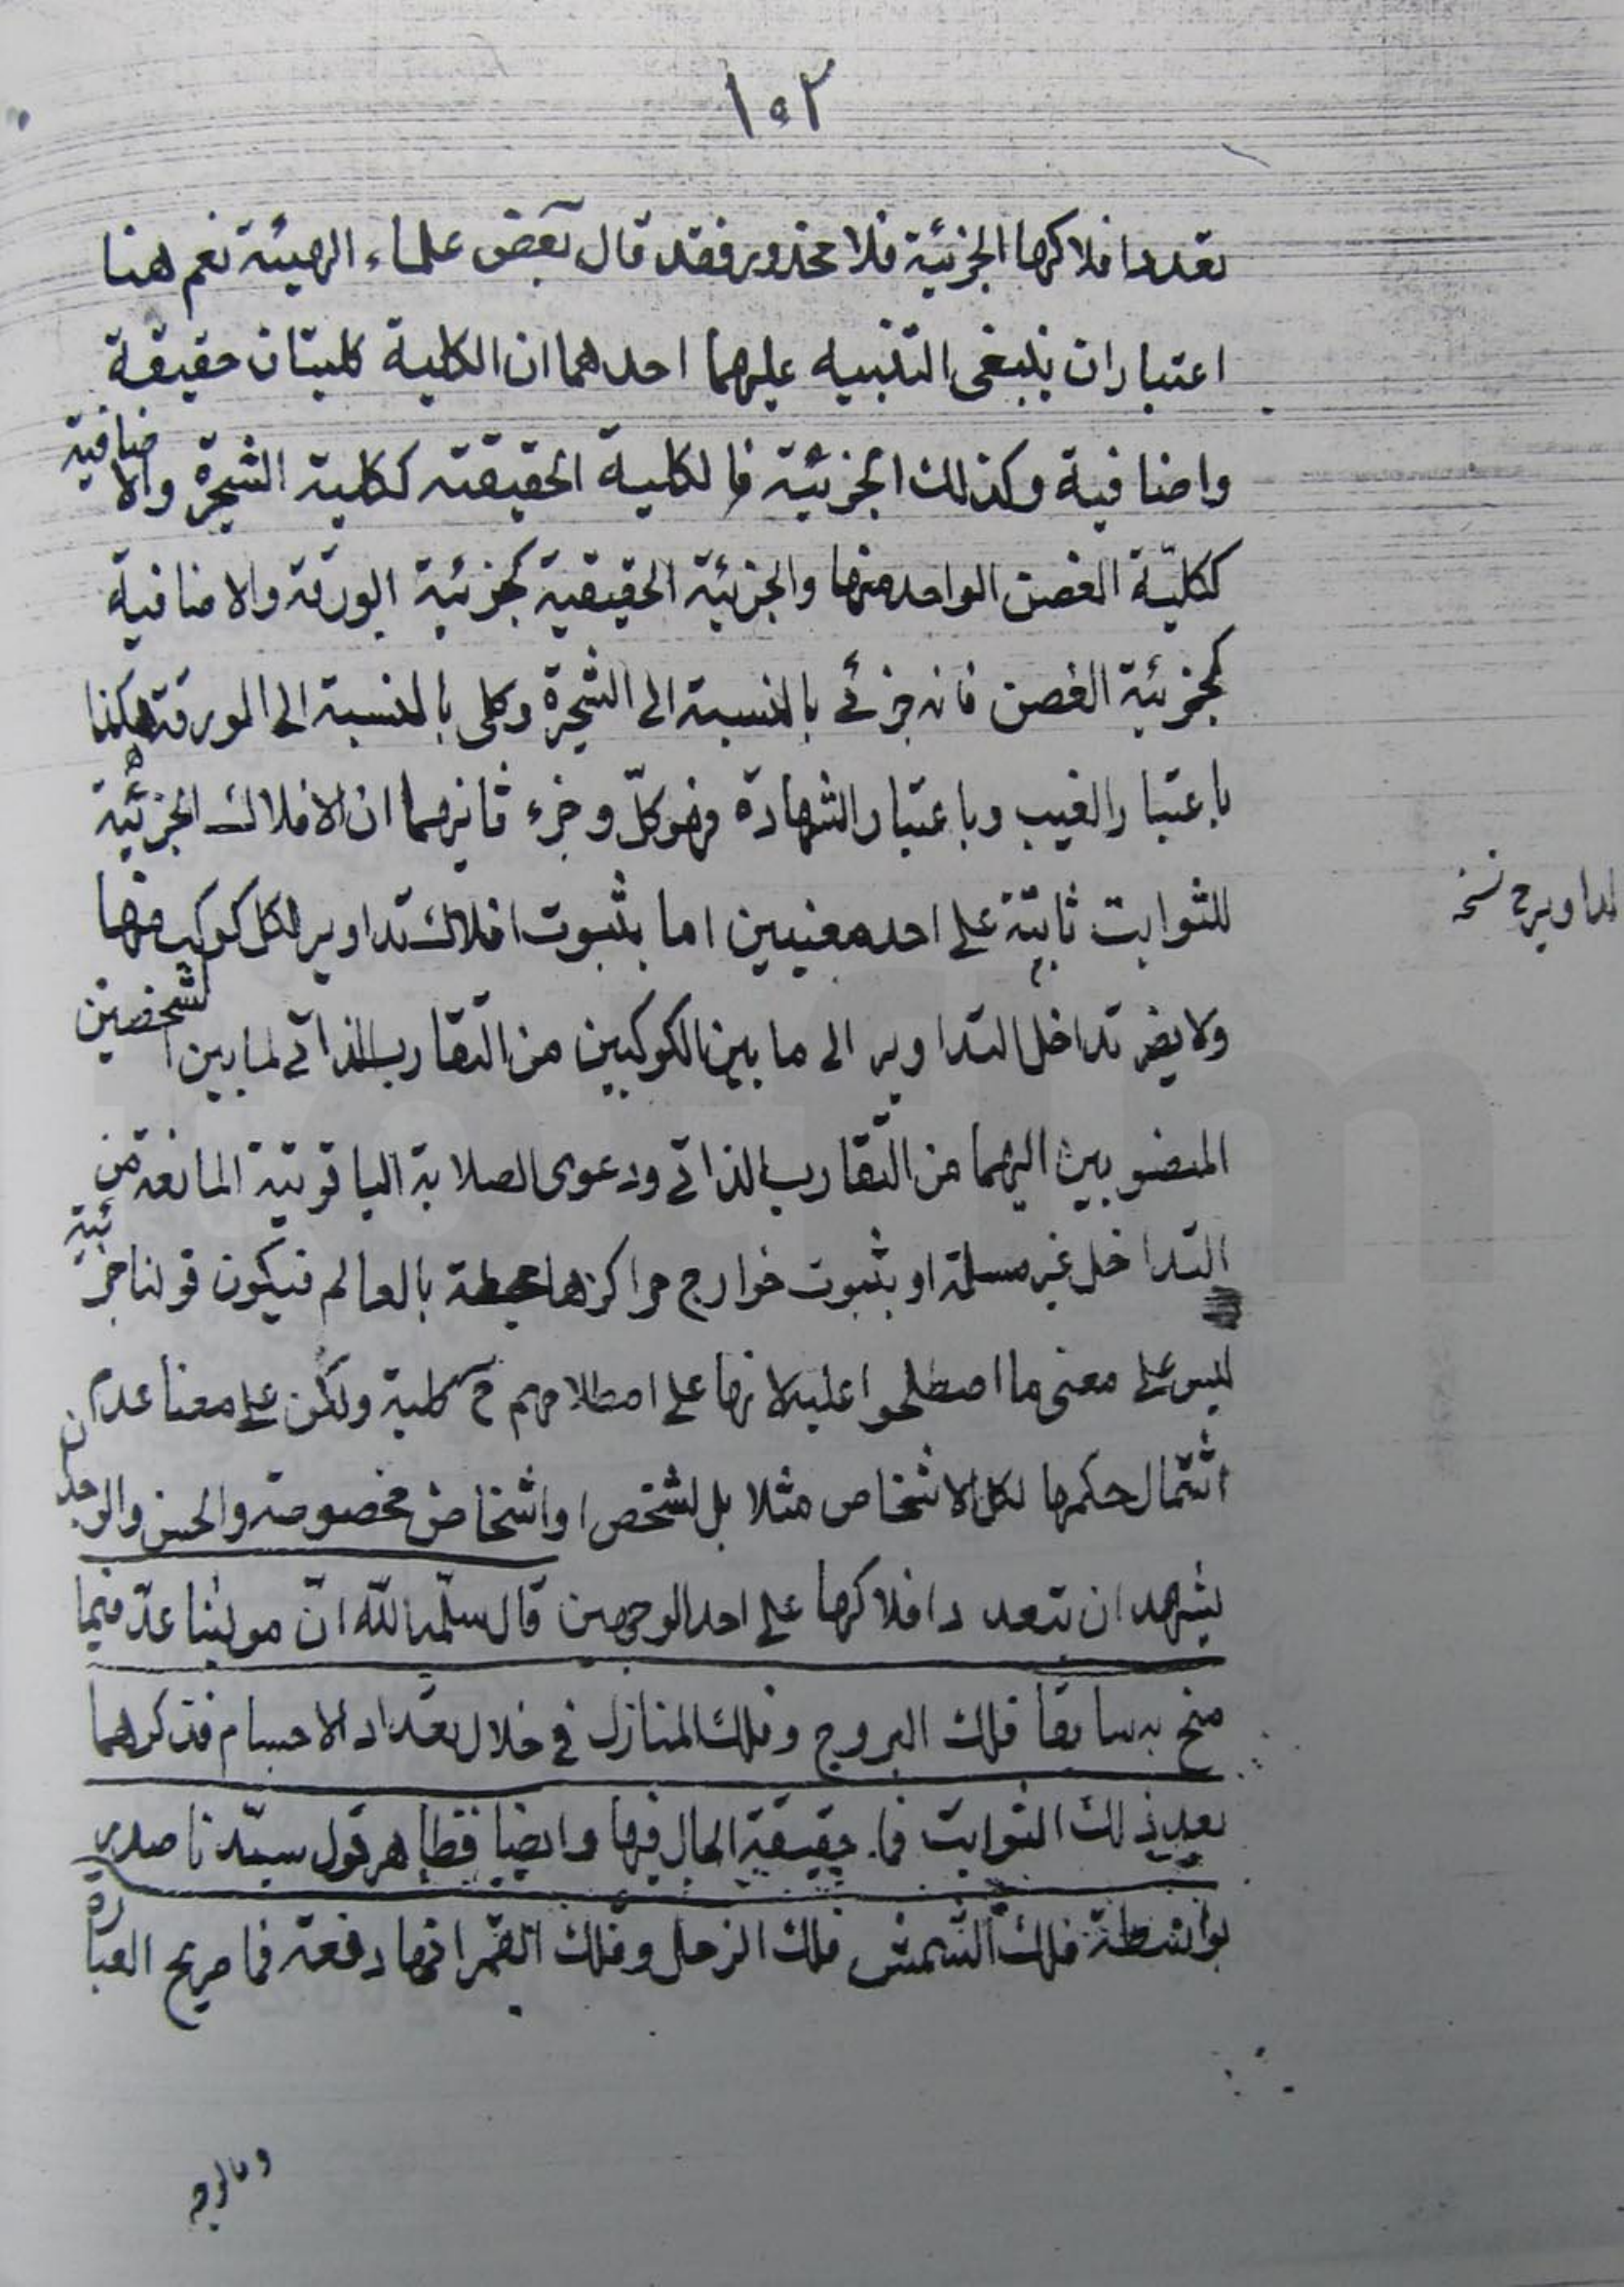 ١٠٢
تعدد افلاكها الجزئية فلا محذور فقد قال بعض علماء الهيئة نعم هنا
اعتباران ينبغي التنبيه عليهما احدهما ان الكلية كليتان حقيقة
واضافية وكذلك الجزئية فالكلية الحقيقته ككلية الشجرة والاضافية
ككليّة الغصن الواحد منها والجزئية الحقيقية كجزئية الورقة والاضافية
كجزئية الغصن فانه جزئي بالنسبة الى الشجرة وكلي بالنسبة الى الورقة هكذا
باعتبار الغيب وباعتبار الشهادة فهو كلّ وجزء ثانيهما ان الافلاك الجزئية
للثوابت ثابتة على احد معنيين اما بثبوت افلاك تداوير لكل كوكب منها
التداوير ح نسخه
ولا يضر تداخل التداوير الى ما بين الكوكبين من التقارب الذاتي لما بين الشخصين
المنسوبين اليهما من التقارب الذاتي ودعوى الصلابة الياقوتية المانعة من
التداخل غير مسلمة او بثبوت خوارج مراكزها محيطة بالعالم فيكون قولنا جزئية
ليس على معنى ما اصطلحوا عليه لانها على اصطلاحهم ح كلية ولكن على معنا عدم
اشتمال حكمها لكل الاشخاص مثلا بل لشخص او اشخاص مخصوصة والحس والوجدان
يشهد ان بتعدد افلاكها على احد الوجهين قال سلّمه اللّه انّ موليٰنا عدّ فيما
منح به سابقا فلك البروج وفلك المنازل في خلال تعداد الاجسام فذكرهما
بعد ذلك الثوابت فما حقيقة الحال فيها وايضا فظاهر قول سيّدنا صدر
بواسطة فلك الشمس فلك الزحل وفلك القمر انها دفعة فما صريح العبارة